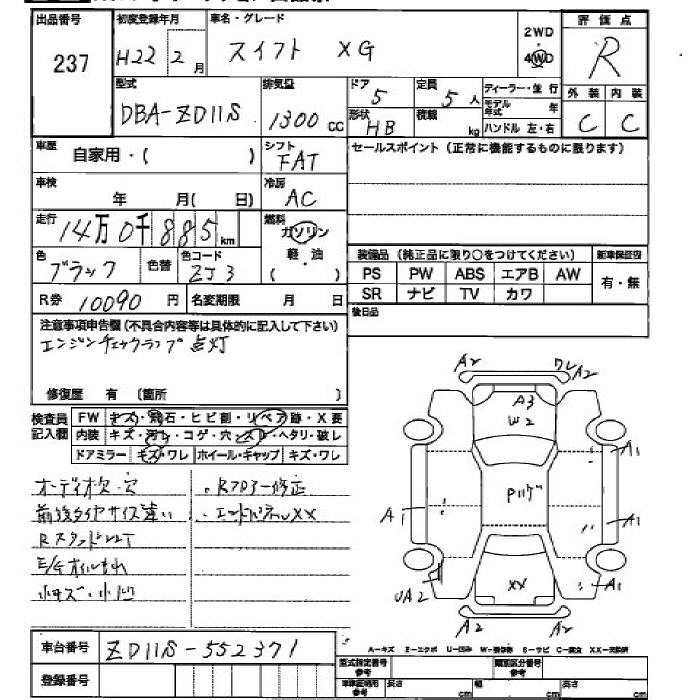 出品番号 初度登録年月 車名・グレード 評価点
237 H22 2月 スイフト XG 2WD・4WD R
型式 排気量 ドア 定員 ディーラー・並行 外装 内装
DBA-ZD11S 1300cc 5 5人 モデル年式 年 C C
形状 HB 積載 kg ハンドル 左・右
車歴 自家用・( ) シフト FAT セールスポイント(正常に機能するものに限ります)
車検 年 月( 日) 冷房 AC
走行 14万0千885km 燃料 ガソリン
軽・油
( )
色 ブラック 色替 色コード ZJ3 装備品(純正品に限り○をつけてください) 新車保証書
PS PW ABS エアB AW 有・無
R券 10090円 名変期限 月 日 SR ナビ TV カワ
後日品
注意事項申告欄(不具合内容等は具体的に記入して下さい)
エンジンチェックランプ点灯
修復歴 有(箇所 )
検査員記入欄 FW キズ・飛石・ヒビ割・リペア跡・X要
内装 キズ・汚レ・コゲ・穴・スレ・ヘタリ・破レ
ドアミラー キズ・ワレ ホイール・キャップ キズ・ワレ
オーディオ欠・穴 ・Rフロアー修正
前後タイヤサイズ違い ・エンドパネルXX
E/Gオイルもれ
小キズ・小凹
A2 ワレ A2
A3
W2
A1
A1 Pハゲ A1
UA2 XX A1
A2 A2
車台番号 ZD11S-552371
A-キズ E-エクボ U-凹み W-補修跡 S-サビ C-腐食 XX-交換済
登録番号 型式指定番号 参考 類別区分番号 参考
車車証明用 参考 長さ cm 幅 cm 高さ cm